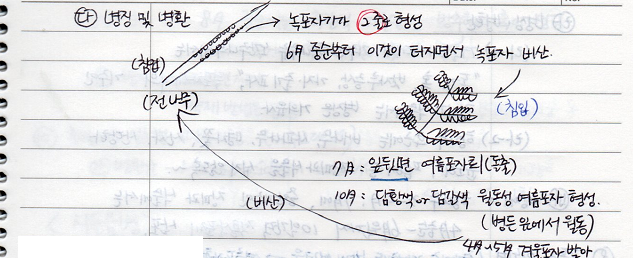 다) 병징 및 병환
녹포자기가 2줄로 형성
6月 중순부터 이것이 터지면서 녹포자 비산.
(침입)
(전나무)
(침입)
7月: 잎뒷면 여름포자퇴(돌출)
10月: 담황색 or 담갈색 월동성 여름포자 형성.
(비산)
(병든 잎에서 월동)
4月~5月 겨울포자 발아